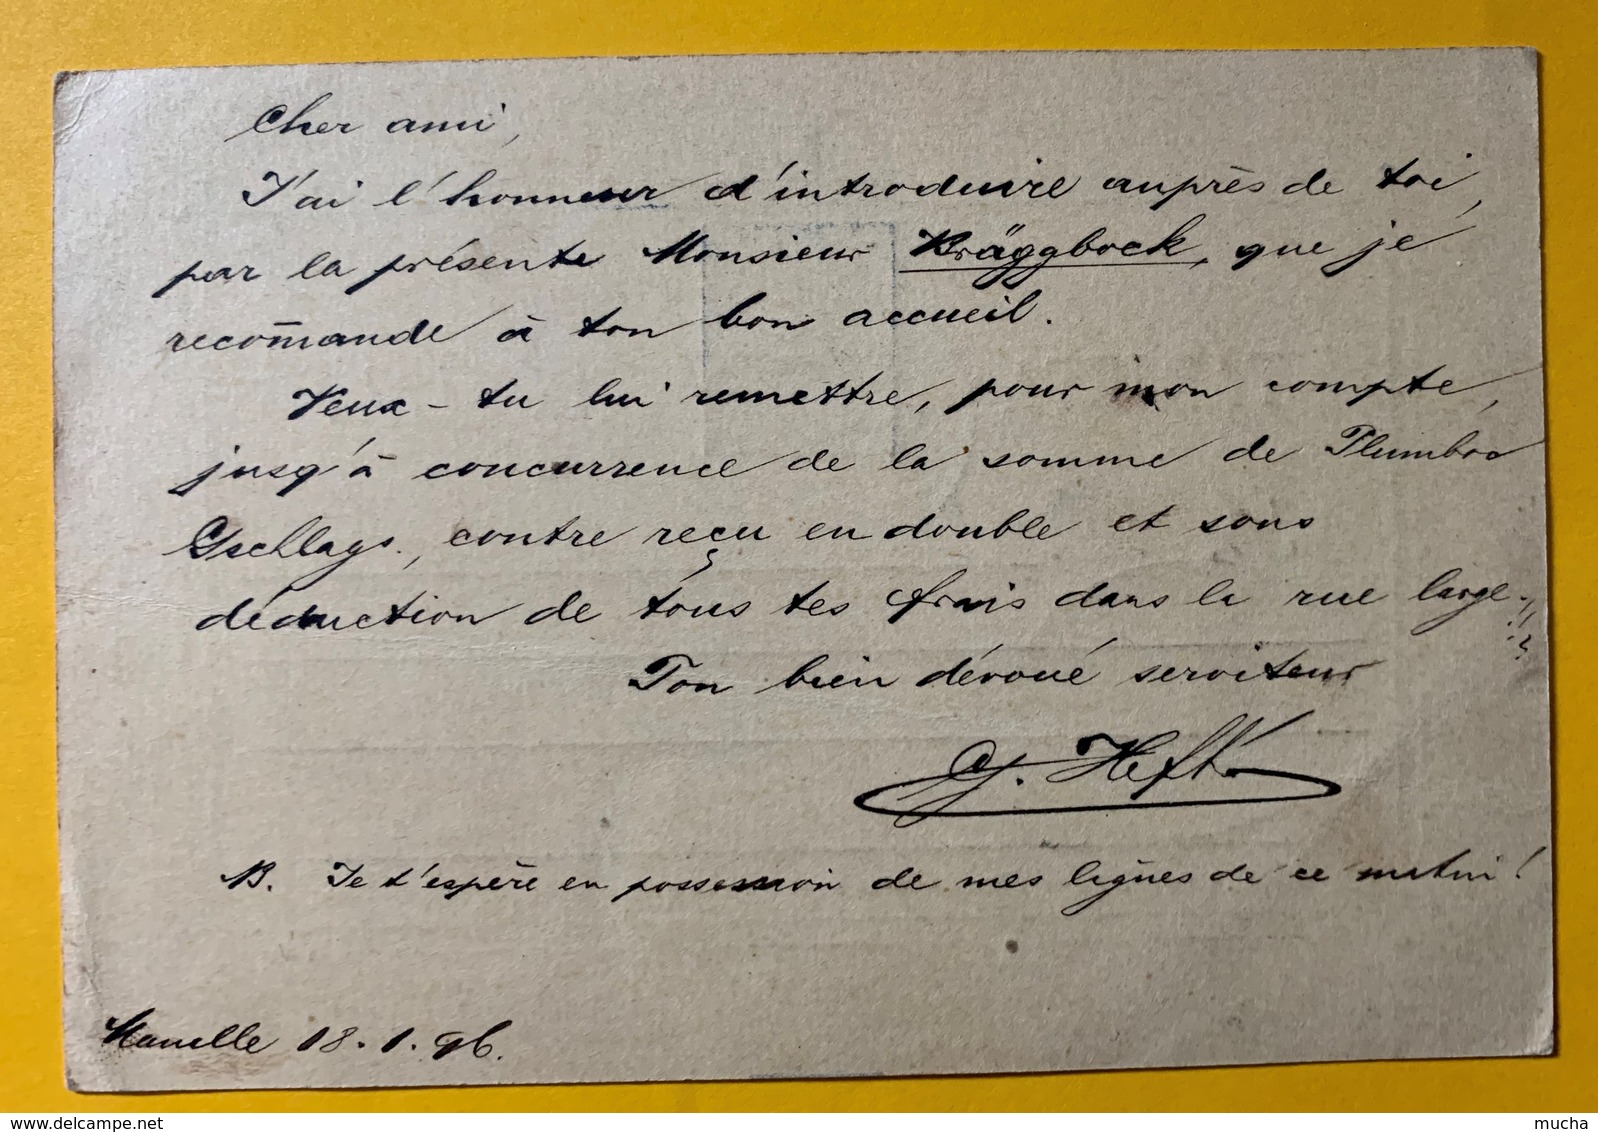 Cher ami,
J'ai l'honneur d'introduire auprès de toi,
par la présente Monsieur Kräggbock, que je
recom̄ande à ton bon accueil.
Veux-tu lui remettre, pour mon compte,
jusq'à concurrence de la somme de Plumbos
Gschlags., contre reçu en double et sous
déduction de tous tes frais dans la rue large.!!?
Ton bien dévoué serviteur
G. Hefti
NB. Je t'espère en possession de mes lignes de ce matin!
18.1.96.
delcampe.net
mucha